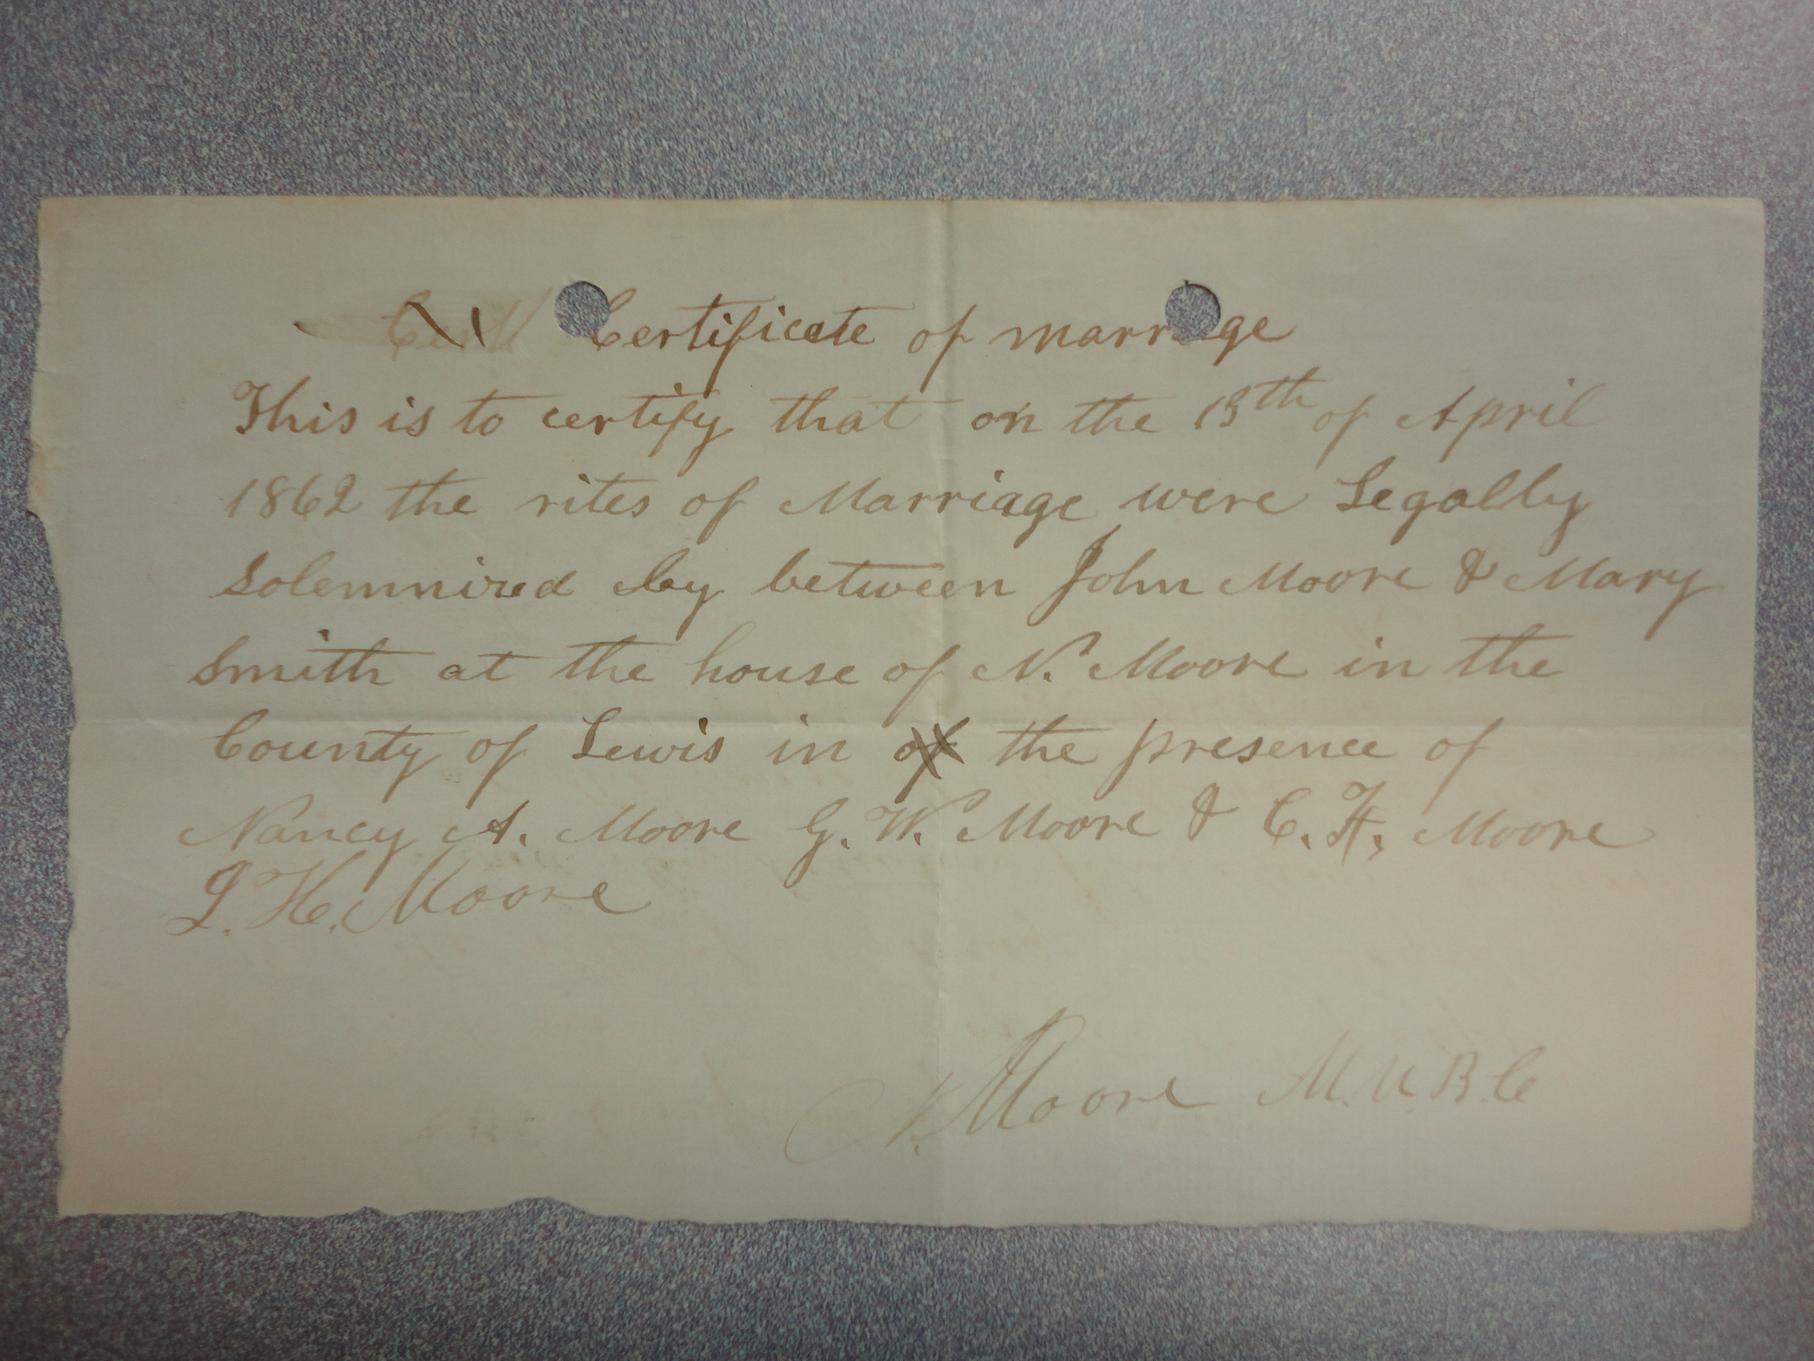 Certificate of marriage
This is to certify that on the 13th of April
1862 the rites of Marriage were Legally
Solemnized by between John Moore & Mary
Smith at the house of N. Moore in the
County of Lewis in of the presence of
Nancy A. Moore G. W. Moore & C. F. Moore
L. H. Moore
N. Moore M. U. B. C